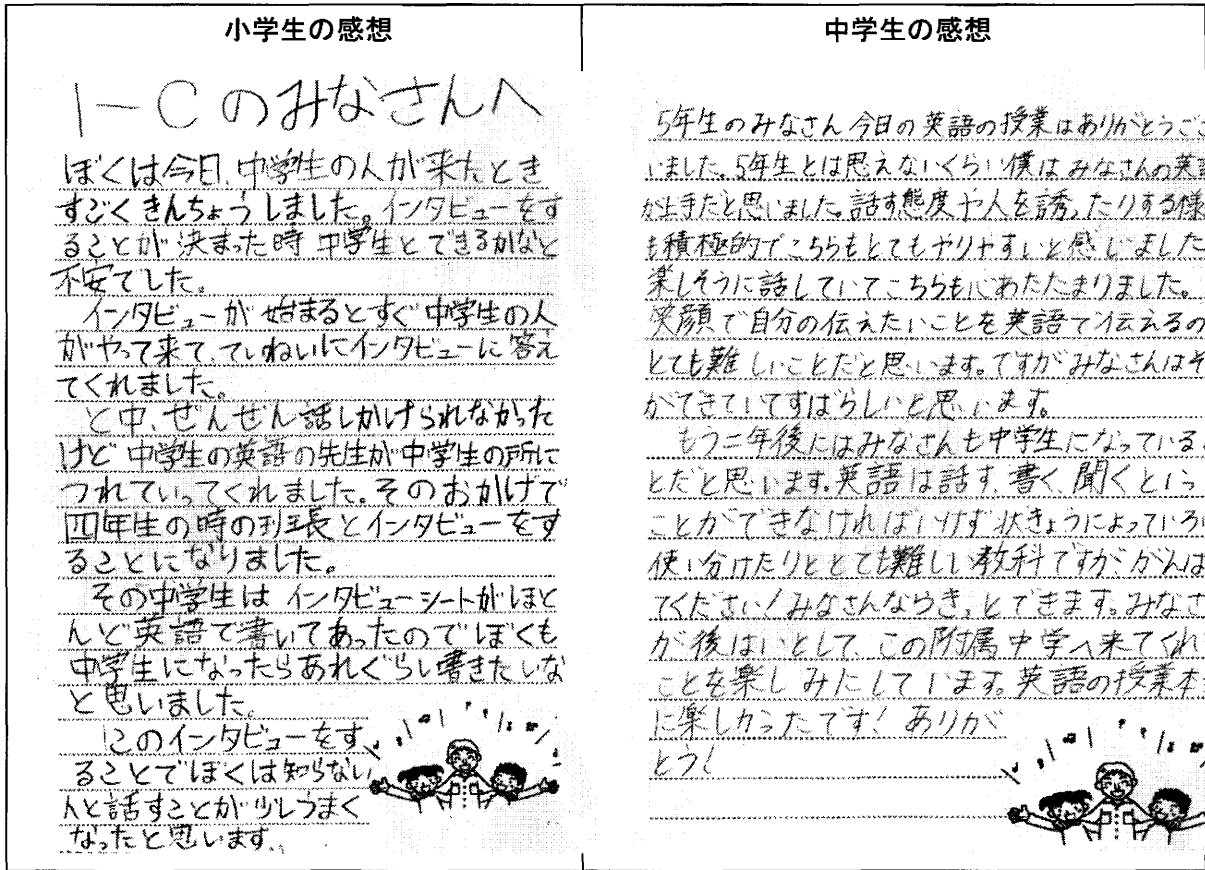 小学生の感想
1-Cのみなさんへ
ぼくは今日、中学生の人が来たとき
すごくきんちょうしました。インタビューをす
ることが決まった時 中学生とできるかなと
不安でした。
インタビューが始まるとすぐ中学生の人
がやって来て、ていねいにインタビューに答え
てくれました。
と中、ぜんぜん話しかけられなかった
けど 中学生の英語の先生が中学生の所に
つれていってくれました。そのおかげで
四年生の時の班長とインタビューをす
ることになりました。
その中学生は インタビューシートがほと
んど英語で書いてあったのでぼくも
中学生になったらあれぐらい書きたいな
と思いました。
このインタビューをす
ることでぼくは知らない
人と話すことが少しうまく
なったと思います。
中学生の感想
5年生のみなさん 今日の英語の授業はありがとうござ
いました。5年生とは思えないくらい僕はみなさんの英語
が上手だと思いました。話す態度や人を誘ったりする様
も積極的でこちらもとてもやりやすいと感じました
楽しそうに話していてこちらも心あたたまりました。
笑顔で自分の伝えたいことを英語で伝えるの
とても難しいことだと思います。ですがみなさんはそ
ができていてすばらしいと思います。
もう二年後にはみなさんも中学生になっている
とだと思います。英語は話す、書く、聞くといっ
ことができなければいけず状きょうによっていろ
使い分けたりととても難しい教科ですが、がんば
てください！みなさんならきっとできます。みなさ
が後はいとして、この附属中学へ来てくれ
ことを楽しみにしています。英語の授業本
に楽しかったです！ ありが
とう！